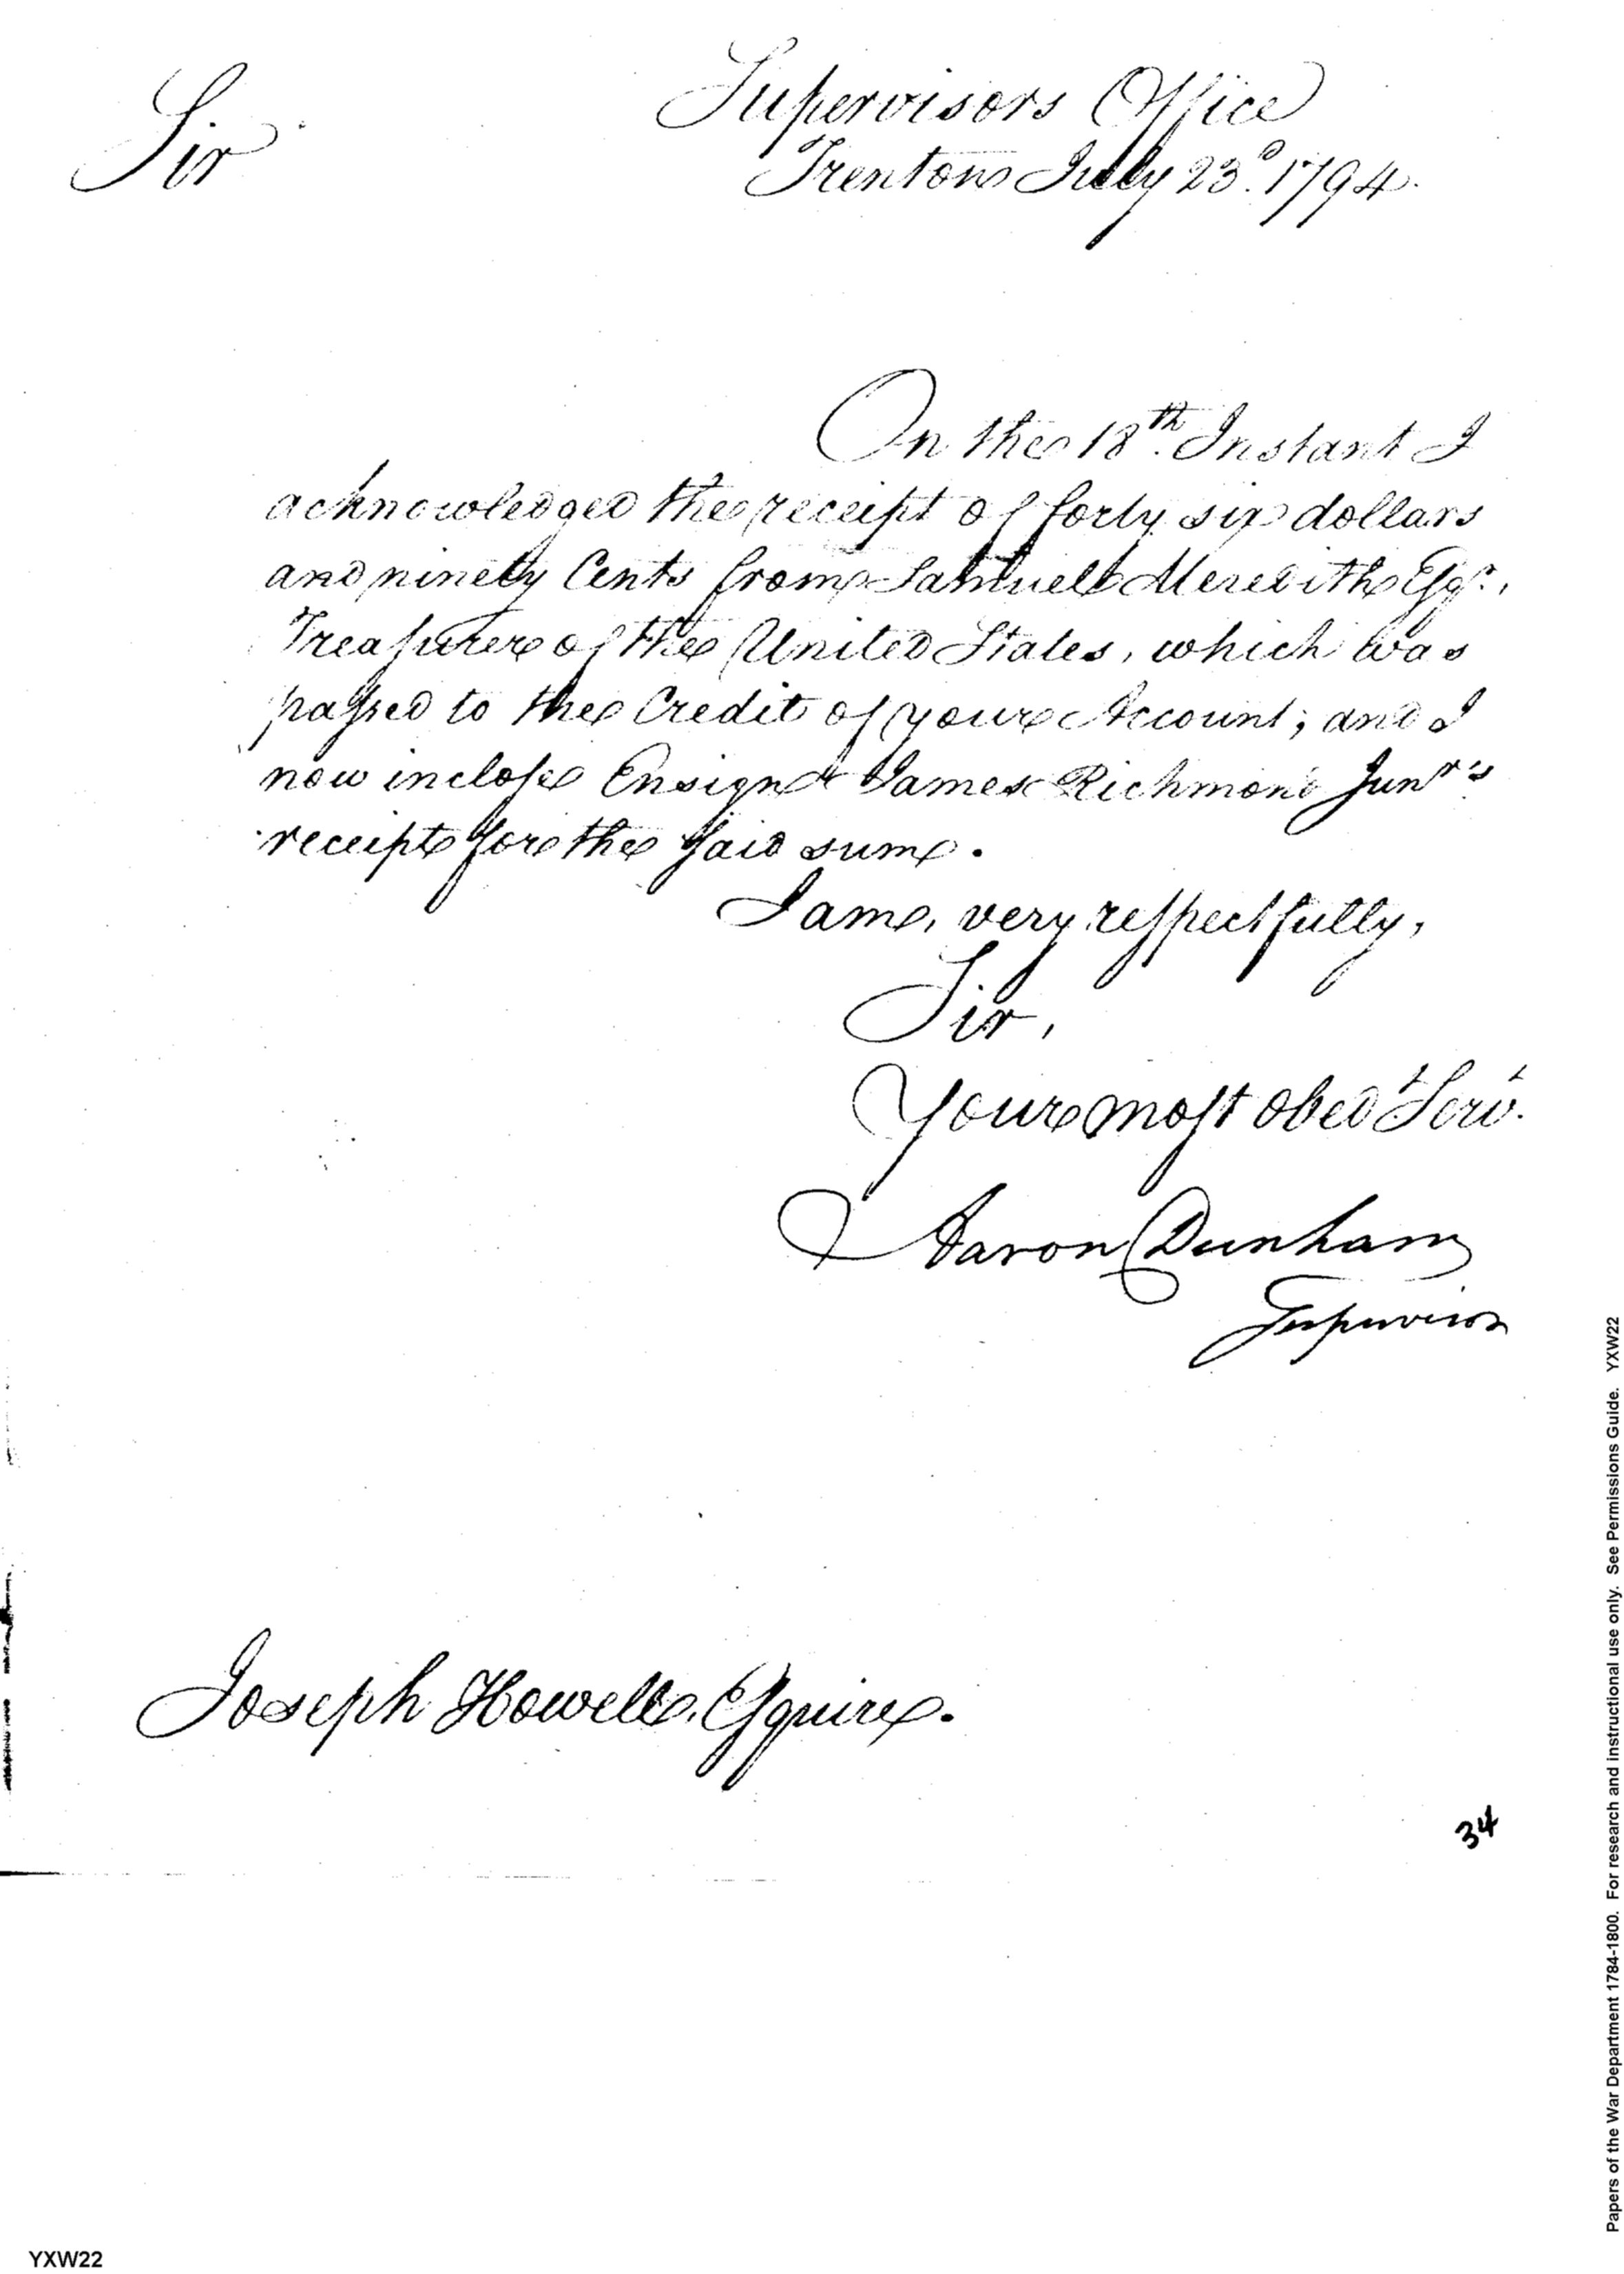 Supervisors Office
Sir
Trenton July 23d. 1794.
On the 18th. Instant I
acknowledged the receipt of forty six dollars
and ninety Cents from Samuel Meredith Esqr.,
Treasurer of the United States, which was
passed to the Credit of your Account; and I
now inclose Ensign James Richmond Junr's
receipt for the said sum.
I am, very respectfully,
Sir,
Your most obedt Servt.
Aaron Dunham
Supervisor
Joseph Howell, Esquire.
34
Papers of the War Department 1784-1800. For research and instructional use only. See Permissions Guide. YXW22
YXW22